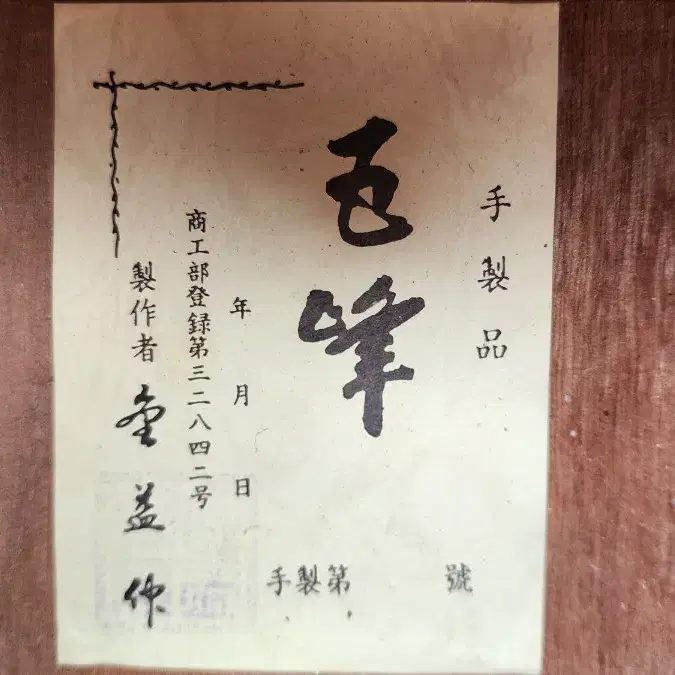 手製品
五峰
年 月 日
商工部登録第三二八四二号
製作者 金益作
手製第 號